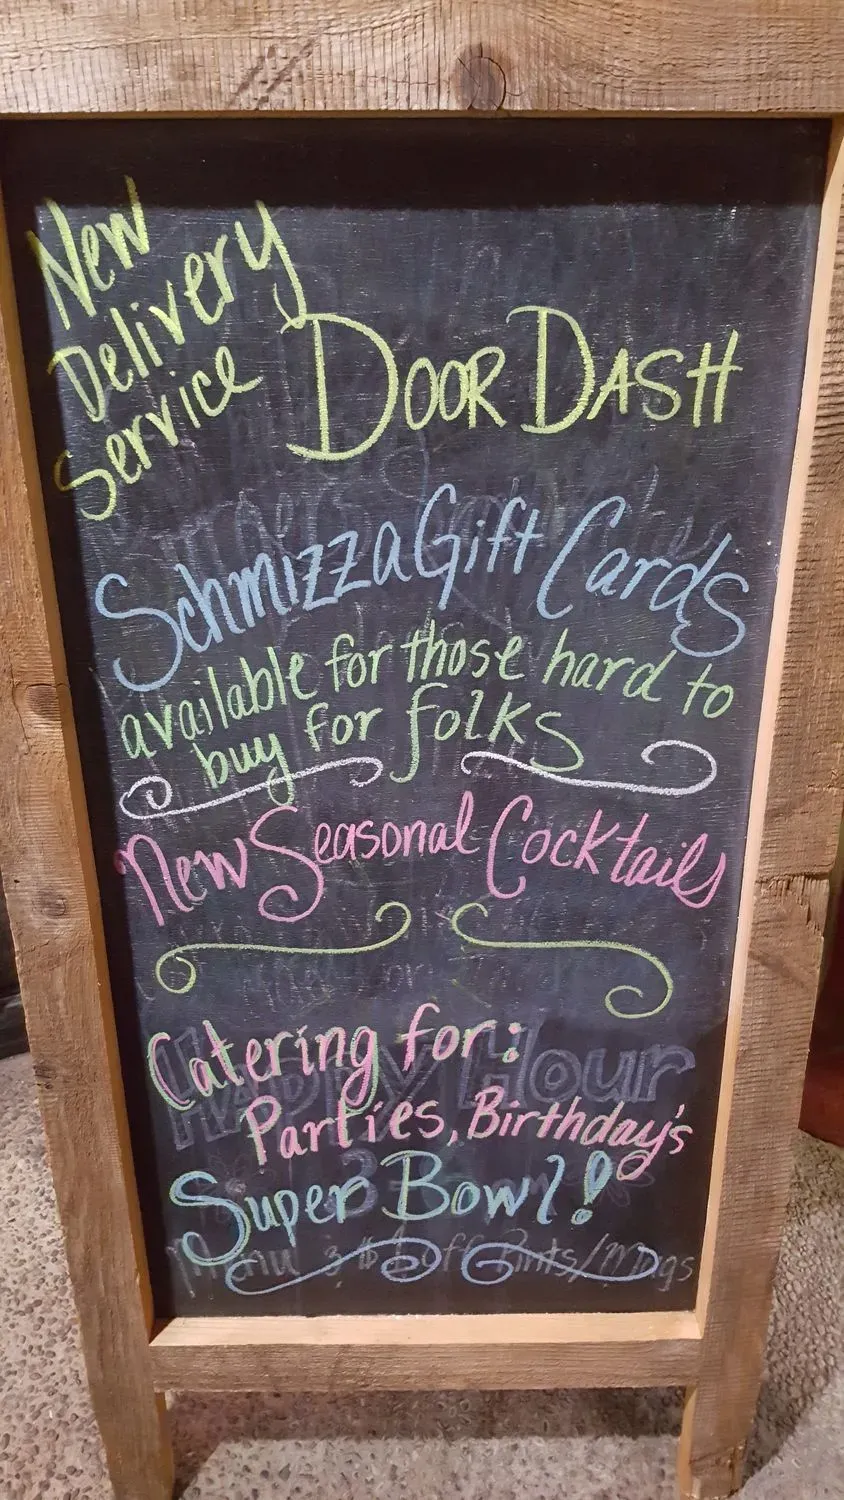 New
Delivery
Service
DOOR DASH
Schmizza Gift Cards
available for those hard to
buy for folks
New Seasonal Cocktails
Catering for:
Happy Hour
Parties, Birthday's
Super Bowl!
Menu & $1 off Pints/Mugs